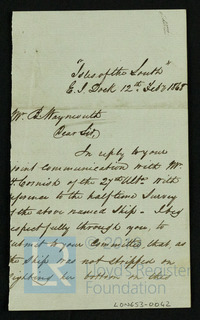 "Isles of the South"
E. I. Dock 12th Feby 1868
Mr. B. Waymouth
(Dear Sir,)
In reply to your
joint communication with Mr.
Cornish of the 27th Ulto. with
reference to the half time Survey
of the above named Ship. I beg
respectfully through you, to
submit to your Committee, that as
the Ship was not stripped on
her bottom on the
Lloyd's Register
Foundation
LON653-0042